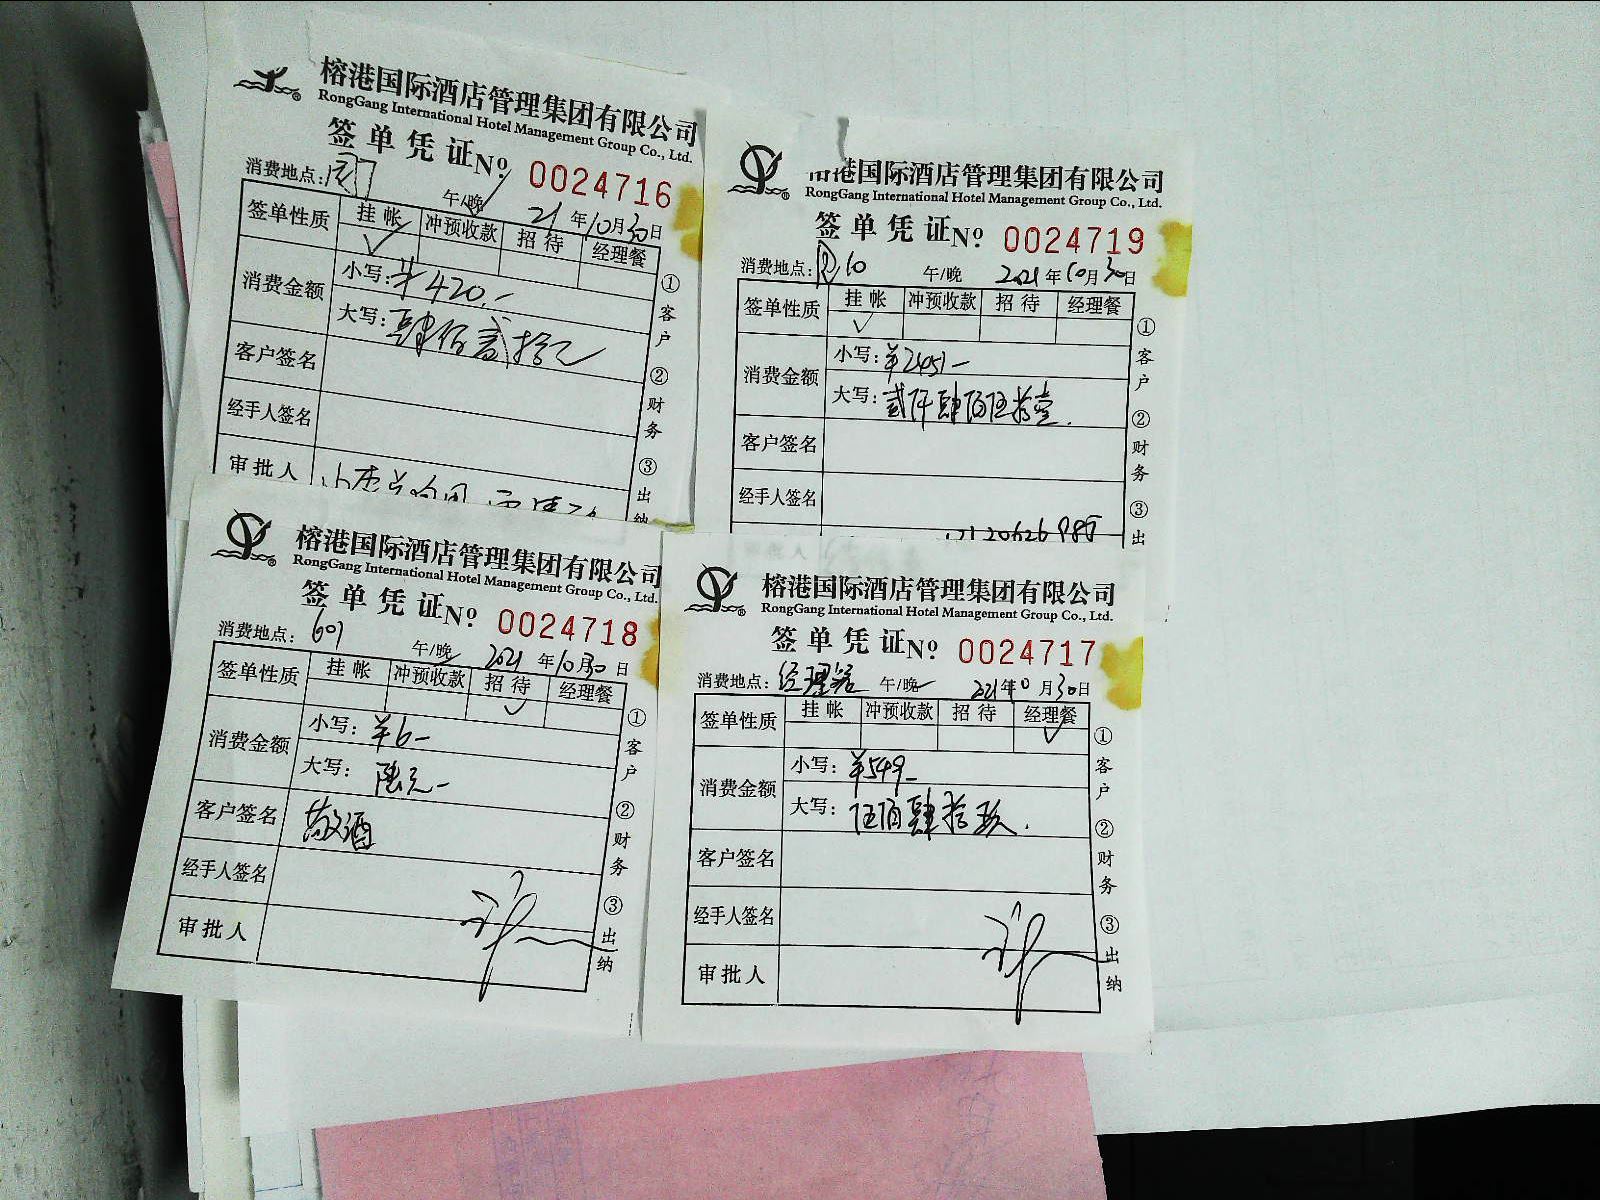 榕港国际酒店管理集团有限公司
RongGang International Hotel Management Group Co., Ltd.
签单凭证 № 0024716
消费地点:
午/晚 21年10月30日
签单性质 挂帐 冲预收款 招待 经理餐
消费金额 小写:¥420-
大写:肆佰贰拾元
客户签名
经手人签名
审批人
①客户 ②财务 ③出纳
港国际酒店管理集团有限公司
RongGang International Hotel Management Group Co., Ltd.
签单凭证 № 0024719
消费地点: 10 午/晚 2021年10月30日
签单性质 挂帐 冲预收款 招待 经理餐
消费金额 小写:¥2451-
大写:贰仟肆佰伍拾壹.
客户签名
经手人签名
①客户 ②财务 ③出
榕港国际酒店管理集团有限公司
RongGang International Hotel Management Group Co., Ltd.
签单凭证 № 0024718
消费地点: 601 午/晚 2021年10月30日
签单性质 挂帐 冲预收款 招待 经理餐
消费金额 小写:¥6-
大写:陆元-
客户签名 敬酒
经手人签名
审批人
①客户 ②财务 ③出纳
榕港国际酒店管理集团有限公司
RongGang International Hotel Management Group Co., Ltd.
签单凭证 № 0024717
消费地点:经理餐 午/晚 2021年10月30日
签单性质 挂帐 冲预收款 招待 经理餐
消费金额 小写:¥549-
大写:伍佰肆拾玖.
客户签名
经手人签名
审批人
①客户 ②财务 ③出纳